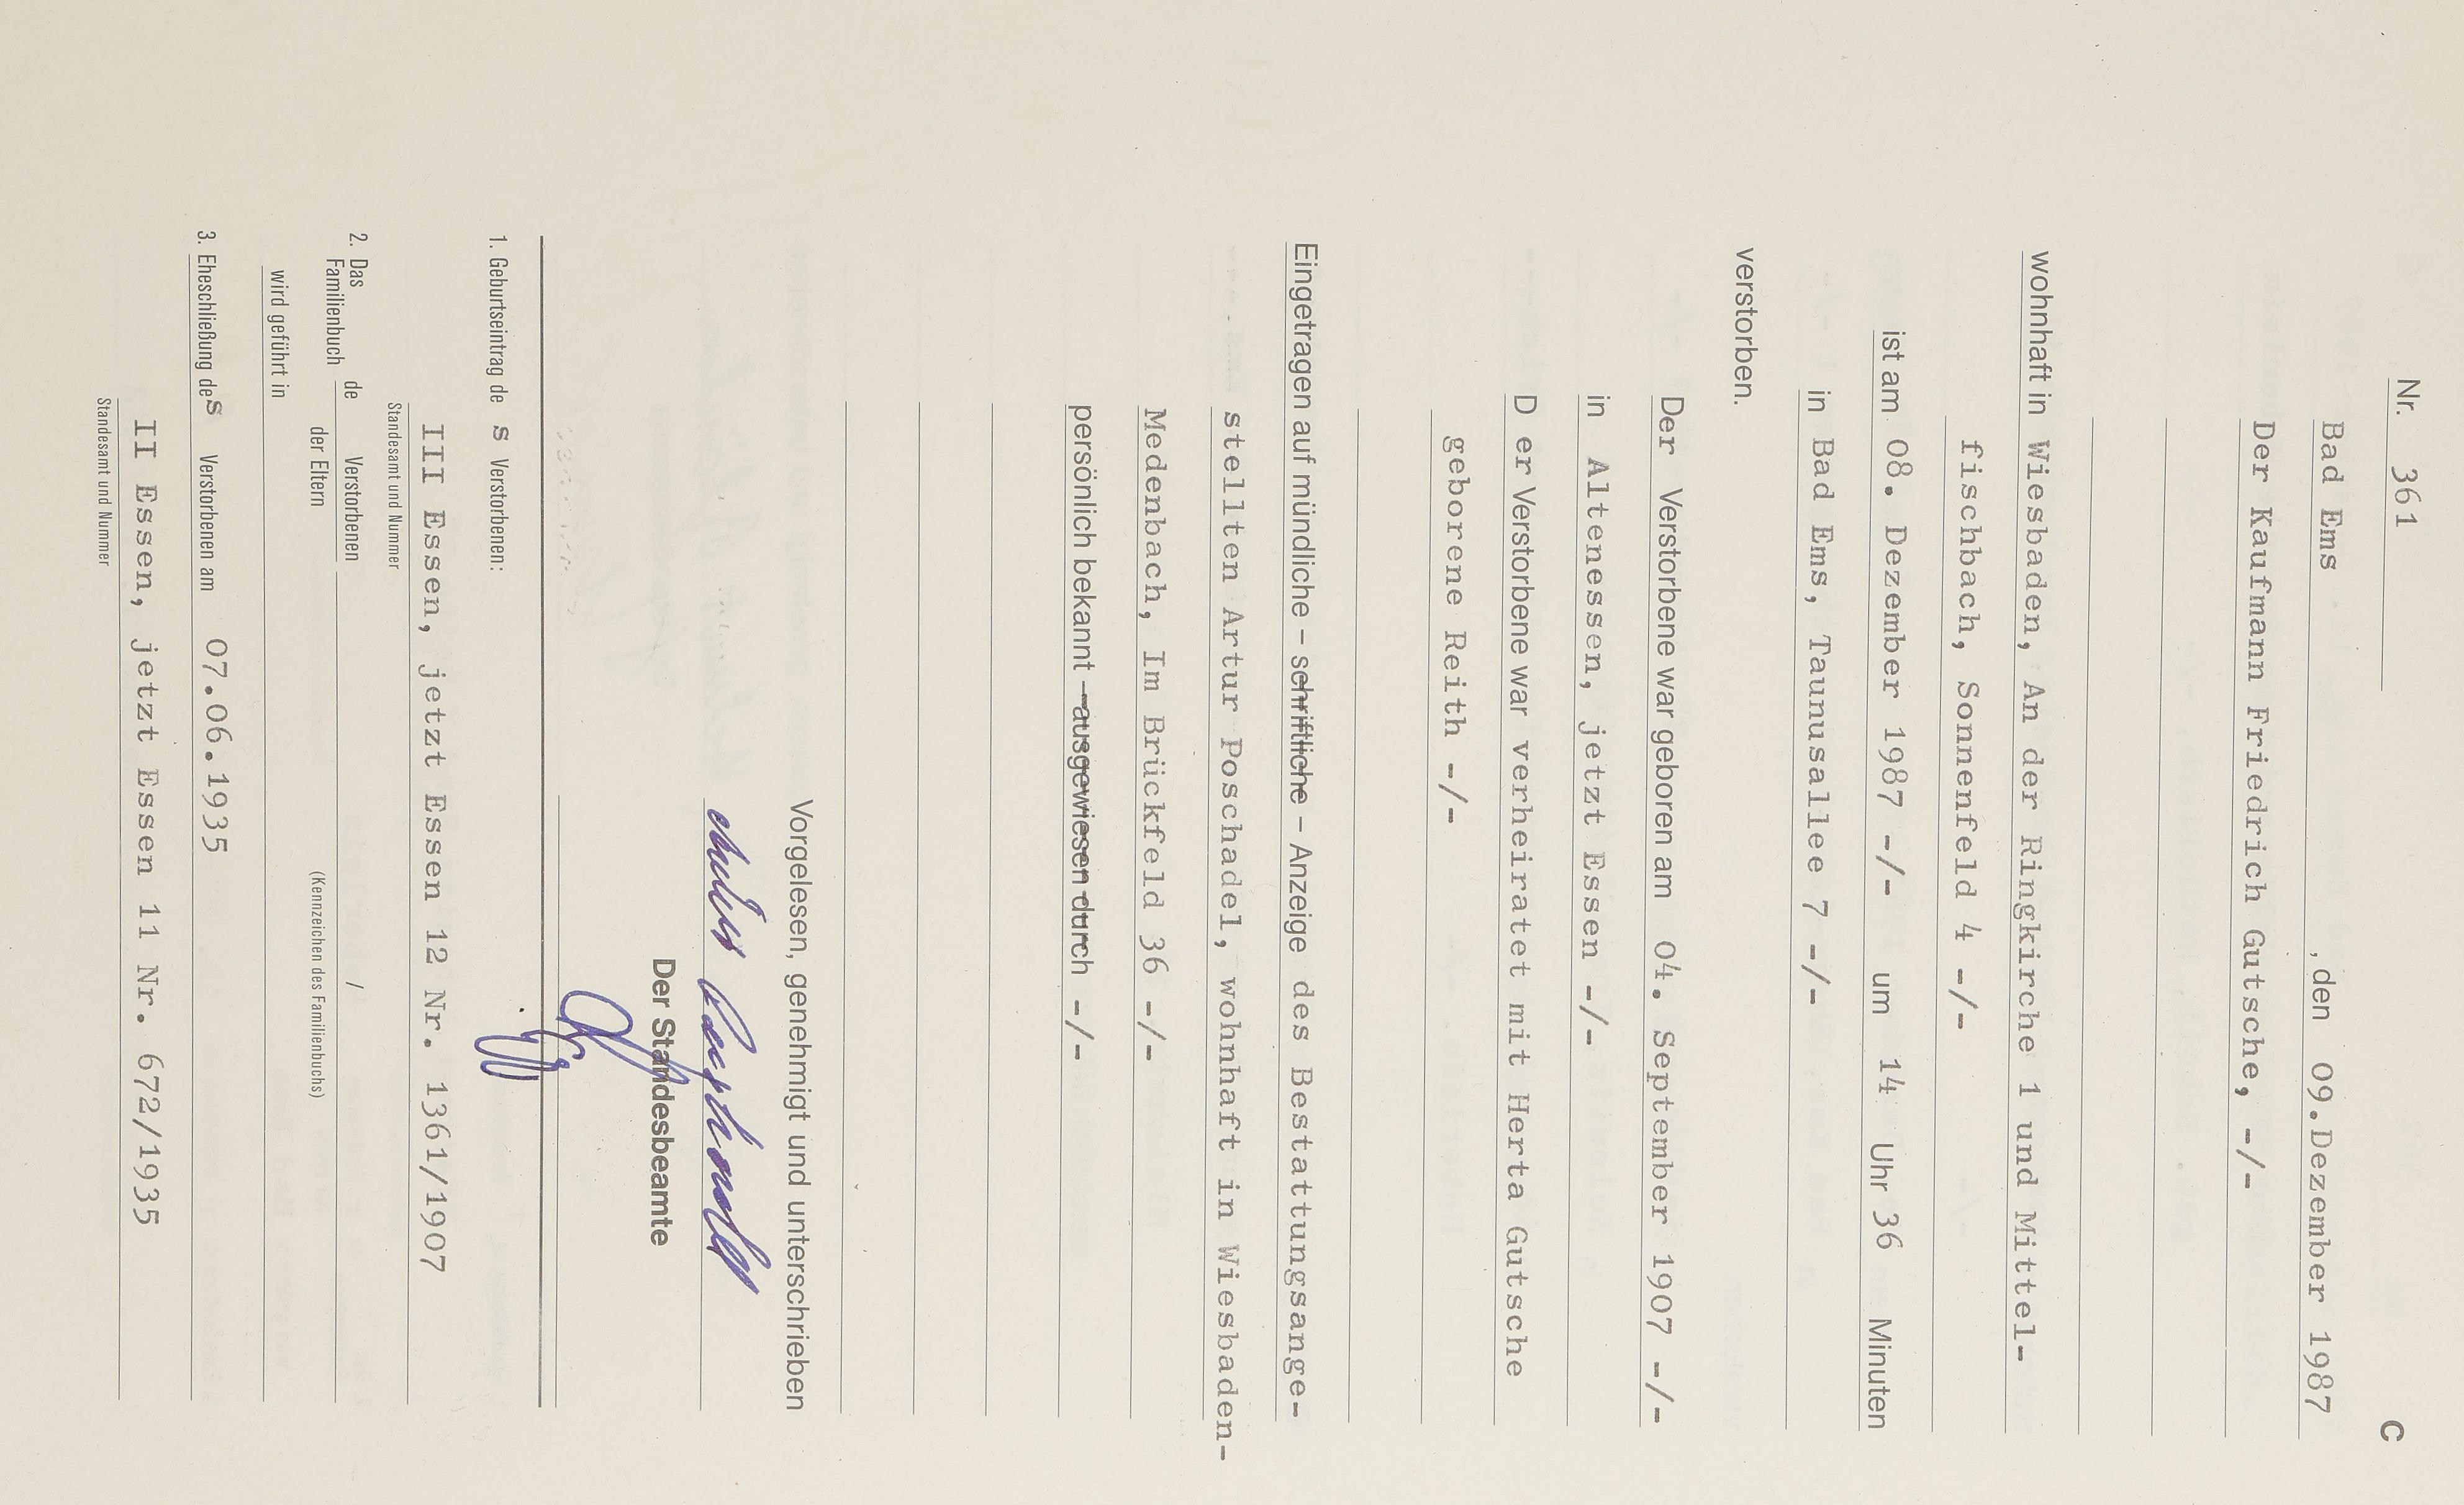 C
Nr. 361
Bad Ems , den 09.Dezember 1987
Der Kaufmann Friedrich Gutsche, -/-
wohnhaft in Wiesbaden, An der Ringkirche 1 und Mittel-
fischbach, Sonnenfeld 4 -/-
ist am 08. Dezember 1987 -/- um 14 Uhr 36 Minuten
in Bad Ems, Taunusallee 7 -/-
verstorben.
Der Verstorbene war geboren am 04. September 1907 -/-
in Altenessen, jetzt Essen -/-
D er Verstorbene war verheiratet mit Herta Gutsche
geborene Reith -/-
Eingetragen auf mündliche – schriftliche – Anzeige des Bestattungsange-
stellten Artur Poschadel, wohnhaft in Wiesbaden-
Medenbach, Im Brückfeld 36 -/-
persönlich bekannt – ausgewiesen durch -/-
Vorgelesen, genehmigt und unterschrieben
Der Standesbeamte
1. Geburtseintrag de s Verstorbenen:
III Essen, jetzt Essen 12 Nr. 1361/1907
Standesamt und Nummer
2. Das Familienbuch de Verstorbenen /
der Eltern (Kennzeichen des Familienbuchs)
wird geführt in
3. Eheschließung des Verstorbenen am 07.06.1935
II Essen, jetzt Essen 11 Nr. 672/1935
Standesamt und Nummer